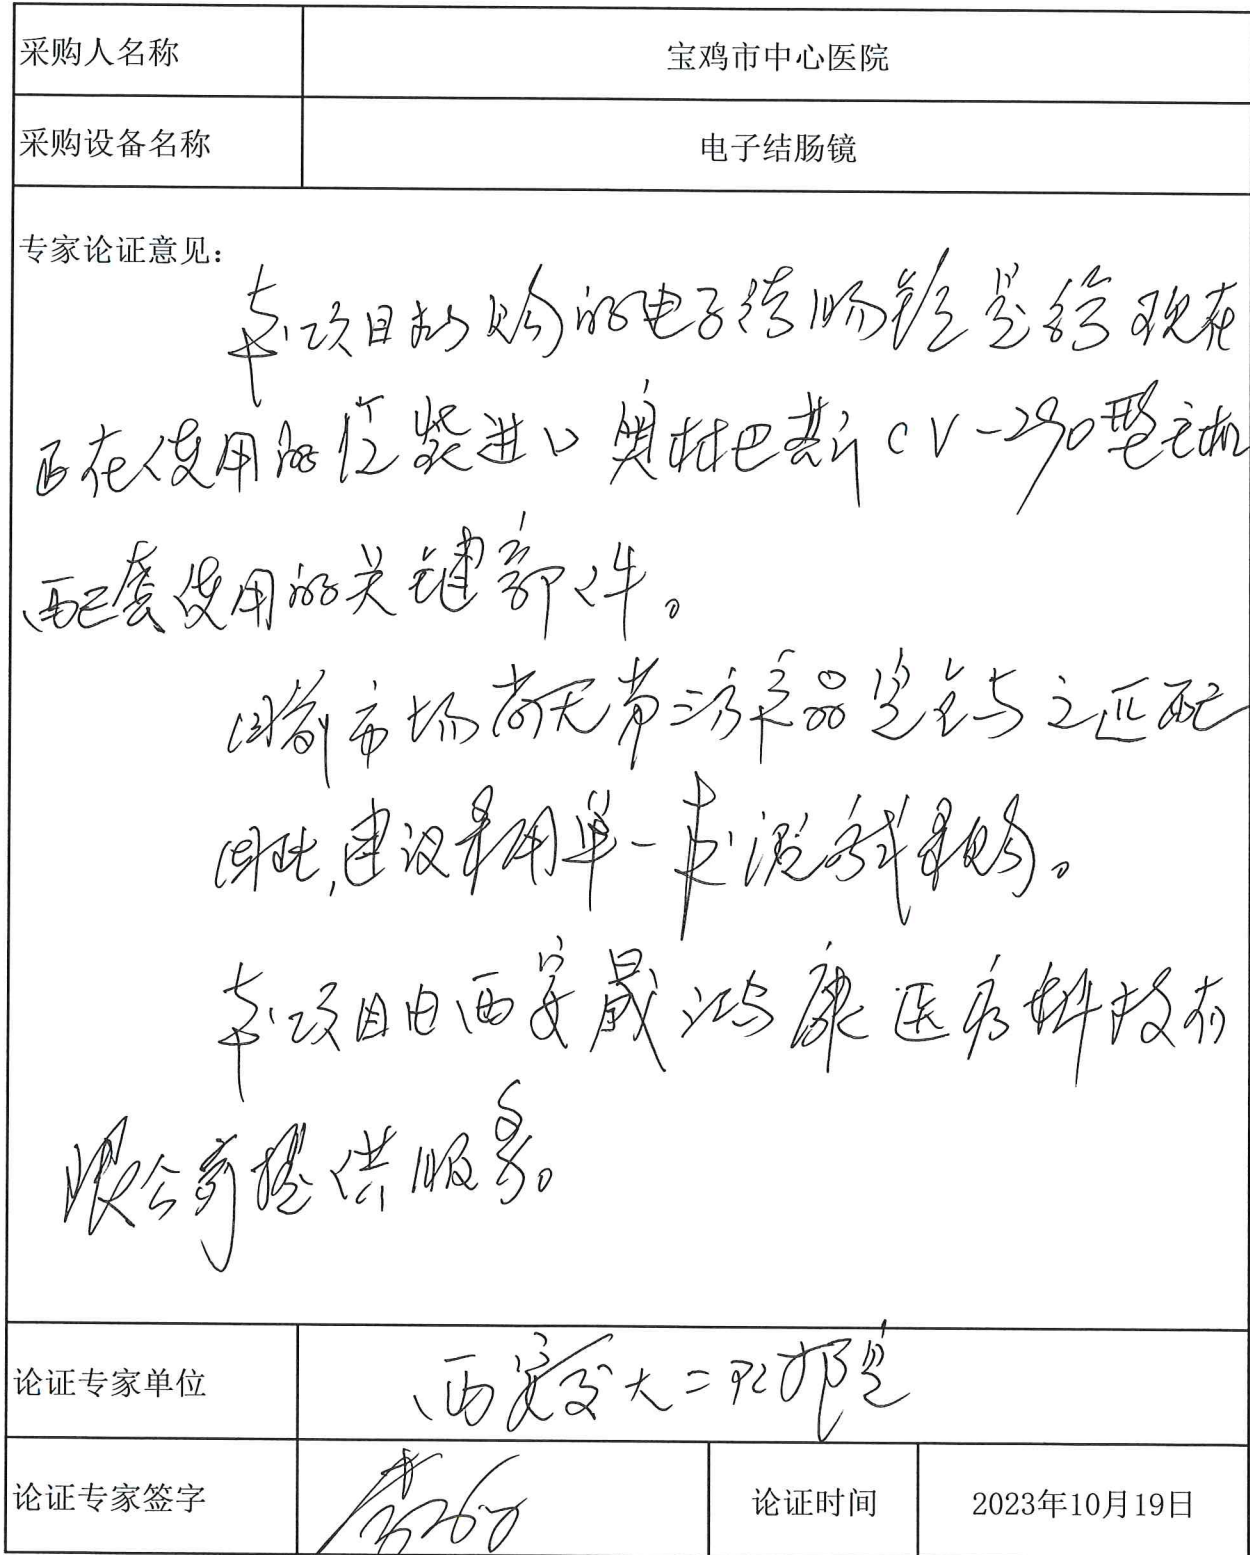 采购人名称 宝鸡市中心医院
采购设备名称 电子结肠镜
专家论证意见：
本项目拟购的电子结肠镜是给现在
正在使用的原装进口奥林巴斯CV-290型主机
配套使用的关键部件。
目前市场尚无第三方产品完全与之匹配
因此,建议采用单一来源方式采购。
本项目由西安晟鸿康医疗科技有
限公司提供服务。
论证专家单位 西安交大二附院
论证专家签字 论证时间 2023年10月19日